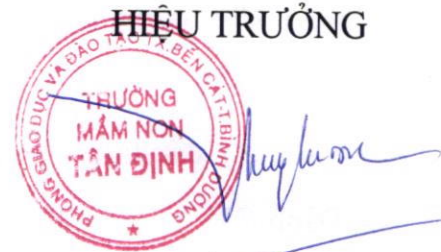 HIỆU TRƯỞNG
PHÒNG GIÁO DỤC VÀ ĐÀO TẠO TX.BẾN CÁT-T.BÌNH DƯƠNG
TRƯỜNG
MẦM NON
TÂN ĐỊNH